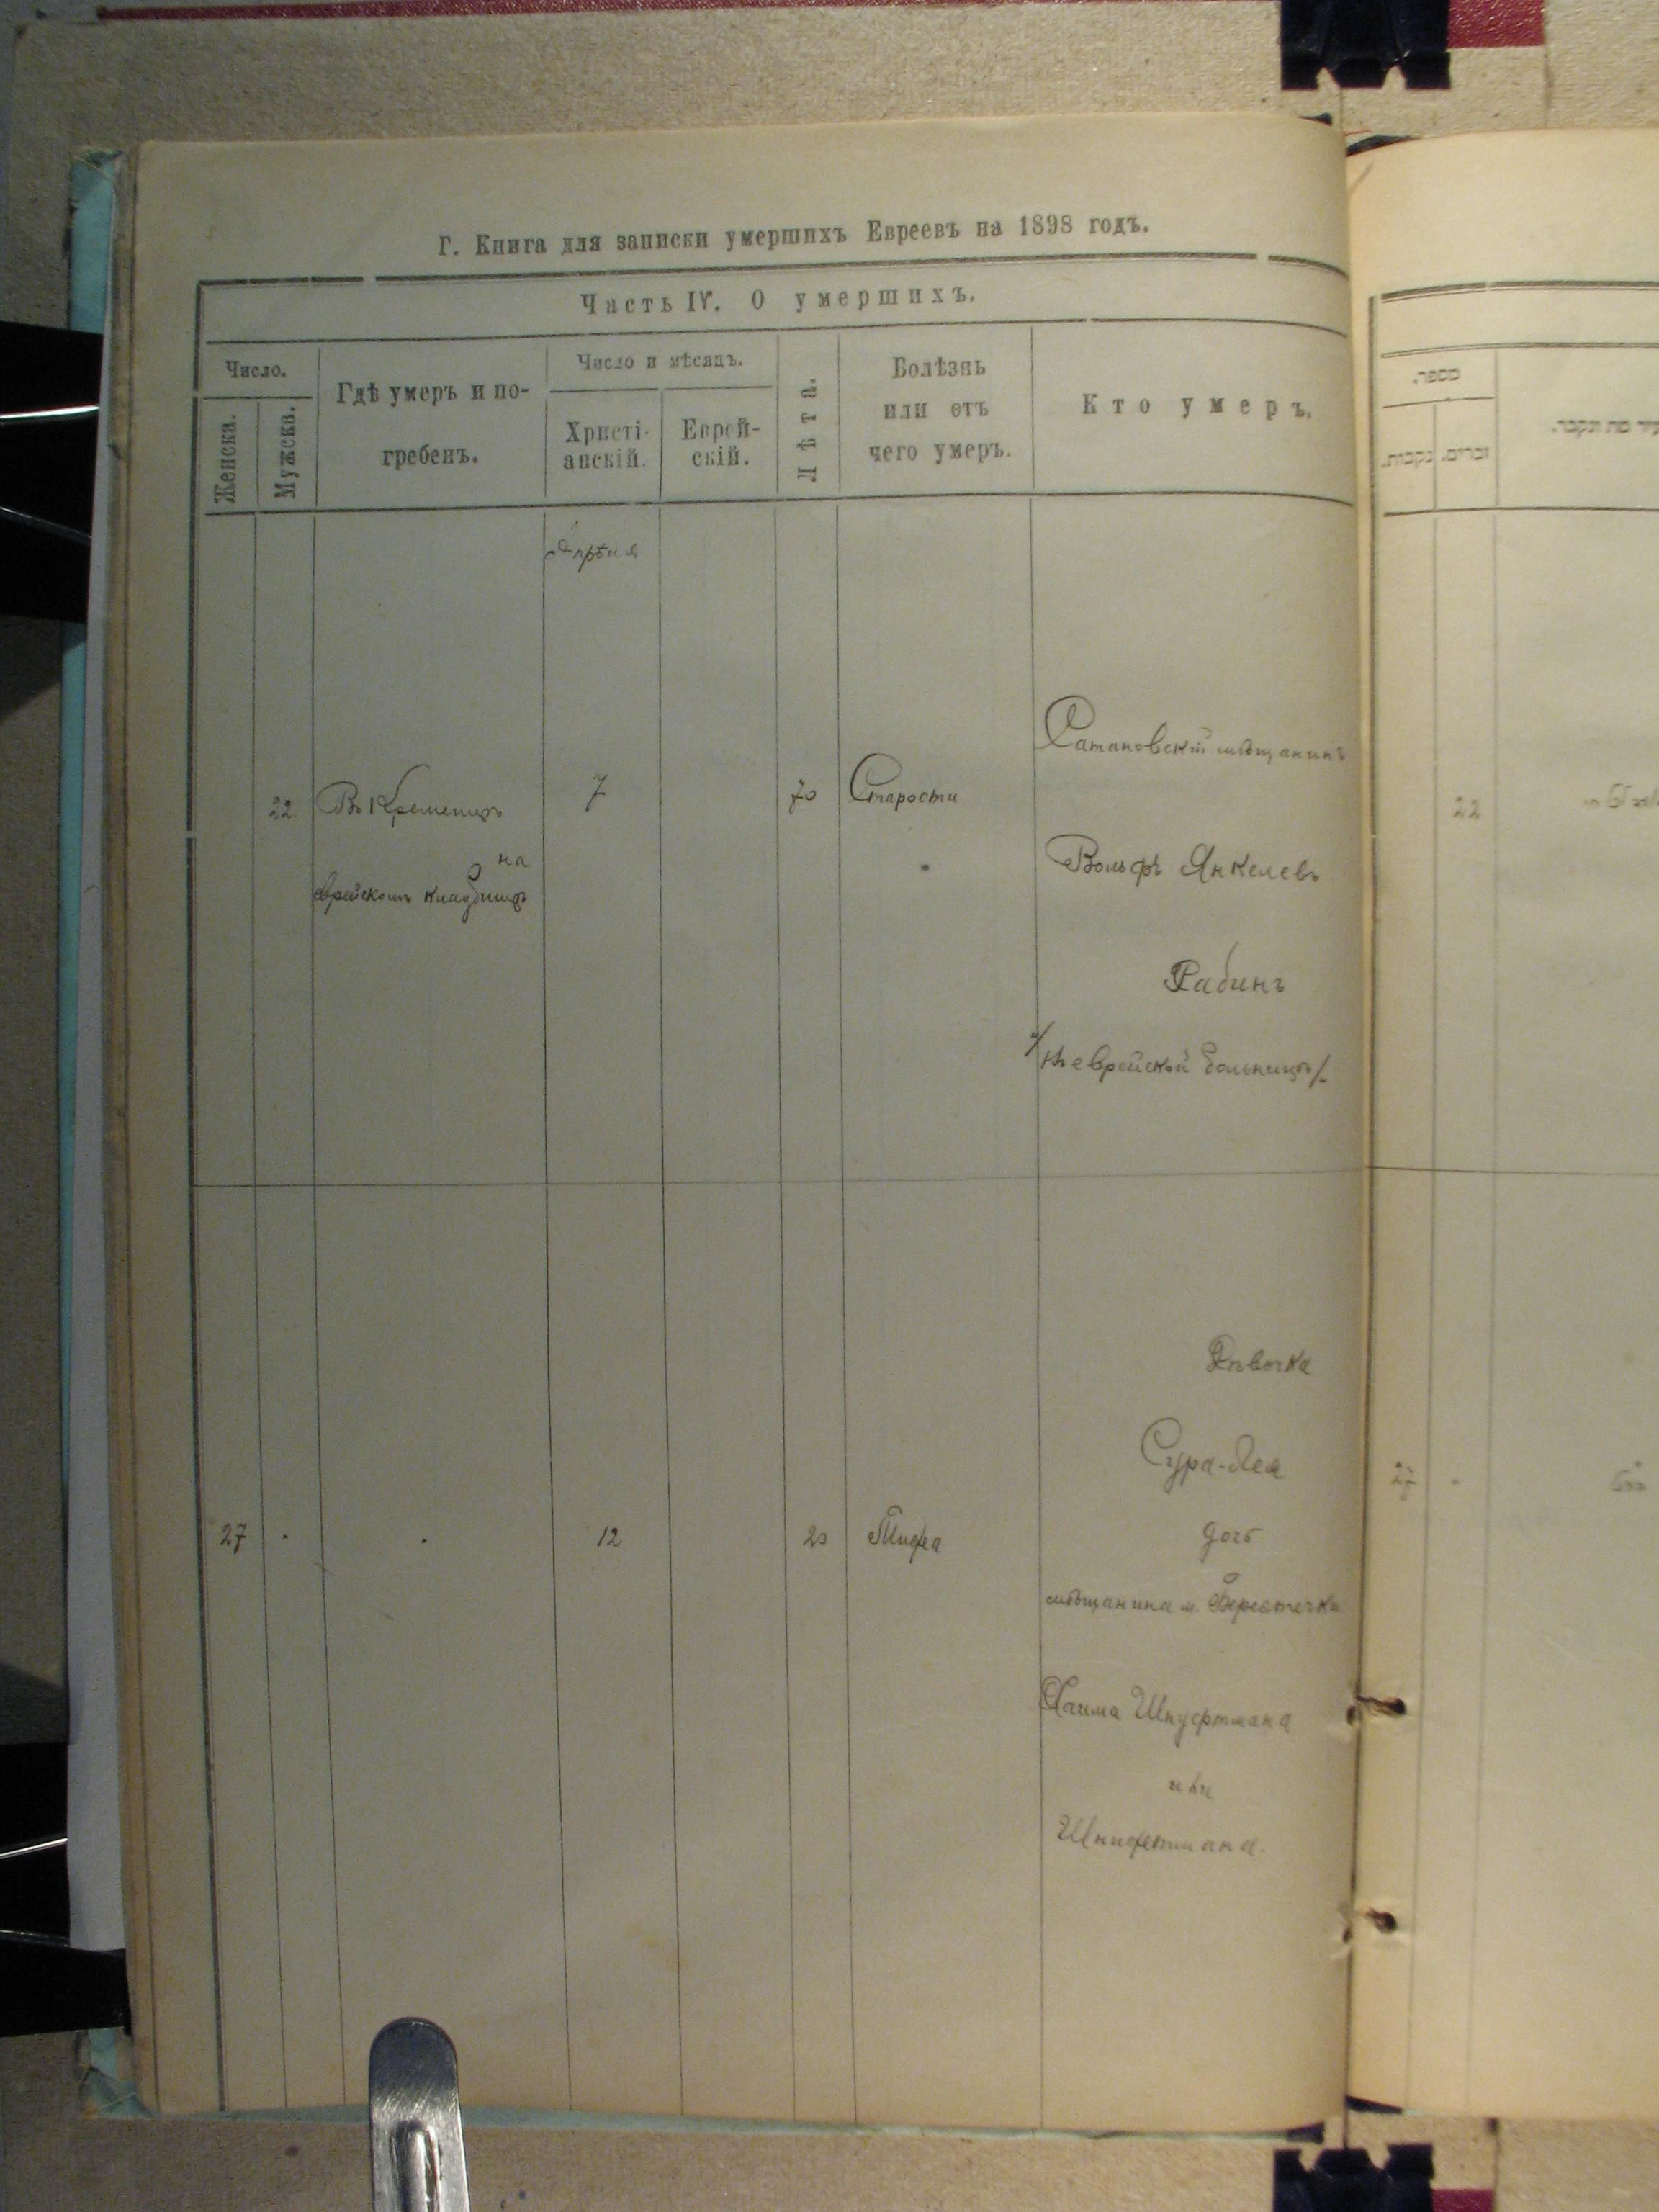 Г. Книга для записки умершихъ Евреевъ на 1898 годъ.
Часть IV. О умершихъ.
Число.
Женска.
Мужска.
Гдѣ умеръ и по-
гребенъ.
Число и мѣсяцъ.
Христі-
анскій.
Еврей-
скій.
Лѣта.
Болѣзнь
или отъ
чего умеръ.
Кто умеръ.
Апрѣля
22
Въ Кременцѣ
на
еврейскомъ кладбищѣ
7
70
Старости
Сатановскій мѣщанинъ
Вольфъ Янкелевъ
Рабинъ
/въ еврейской больницѣ/.
27
12
20
Тифа
Дѣвочка
Сура-Лея
дочь
мѣщанина м. Берестечки
Хаима Шнуфтмана
или
Шнифтмана.
מספר.
זכרים.
נקבות.
מת ונקבר.
22
27